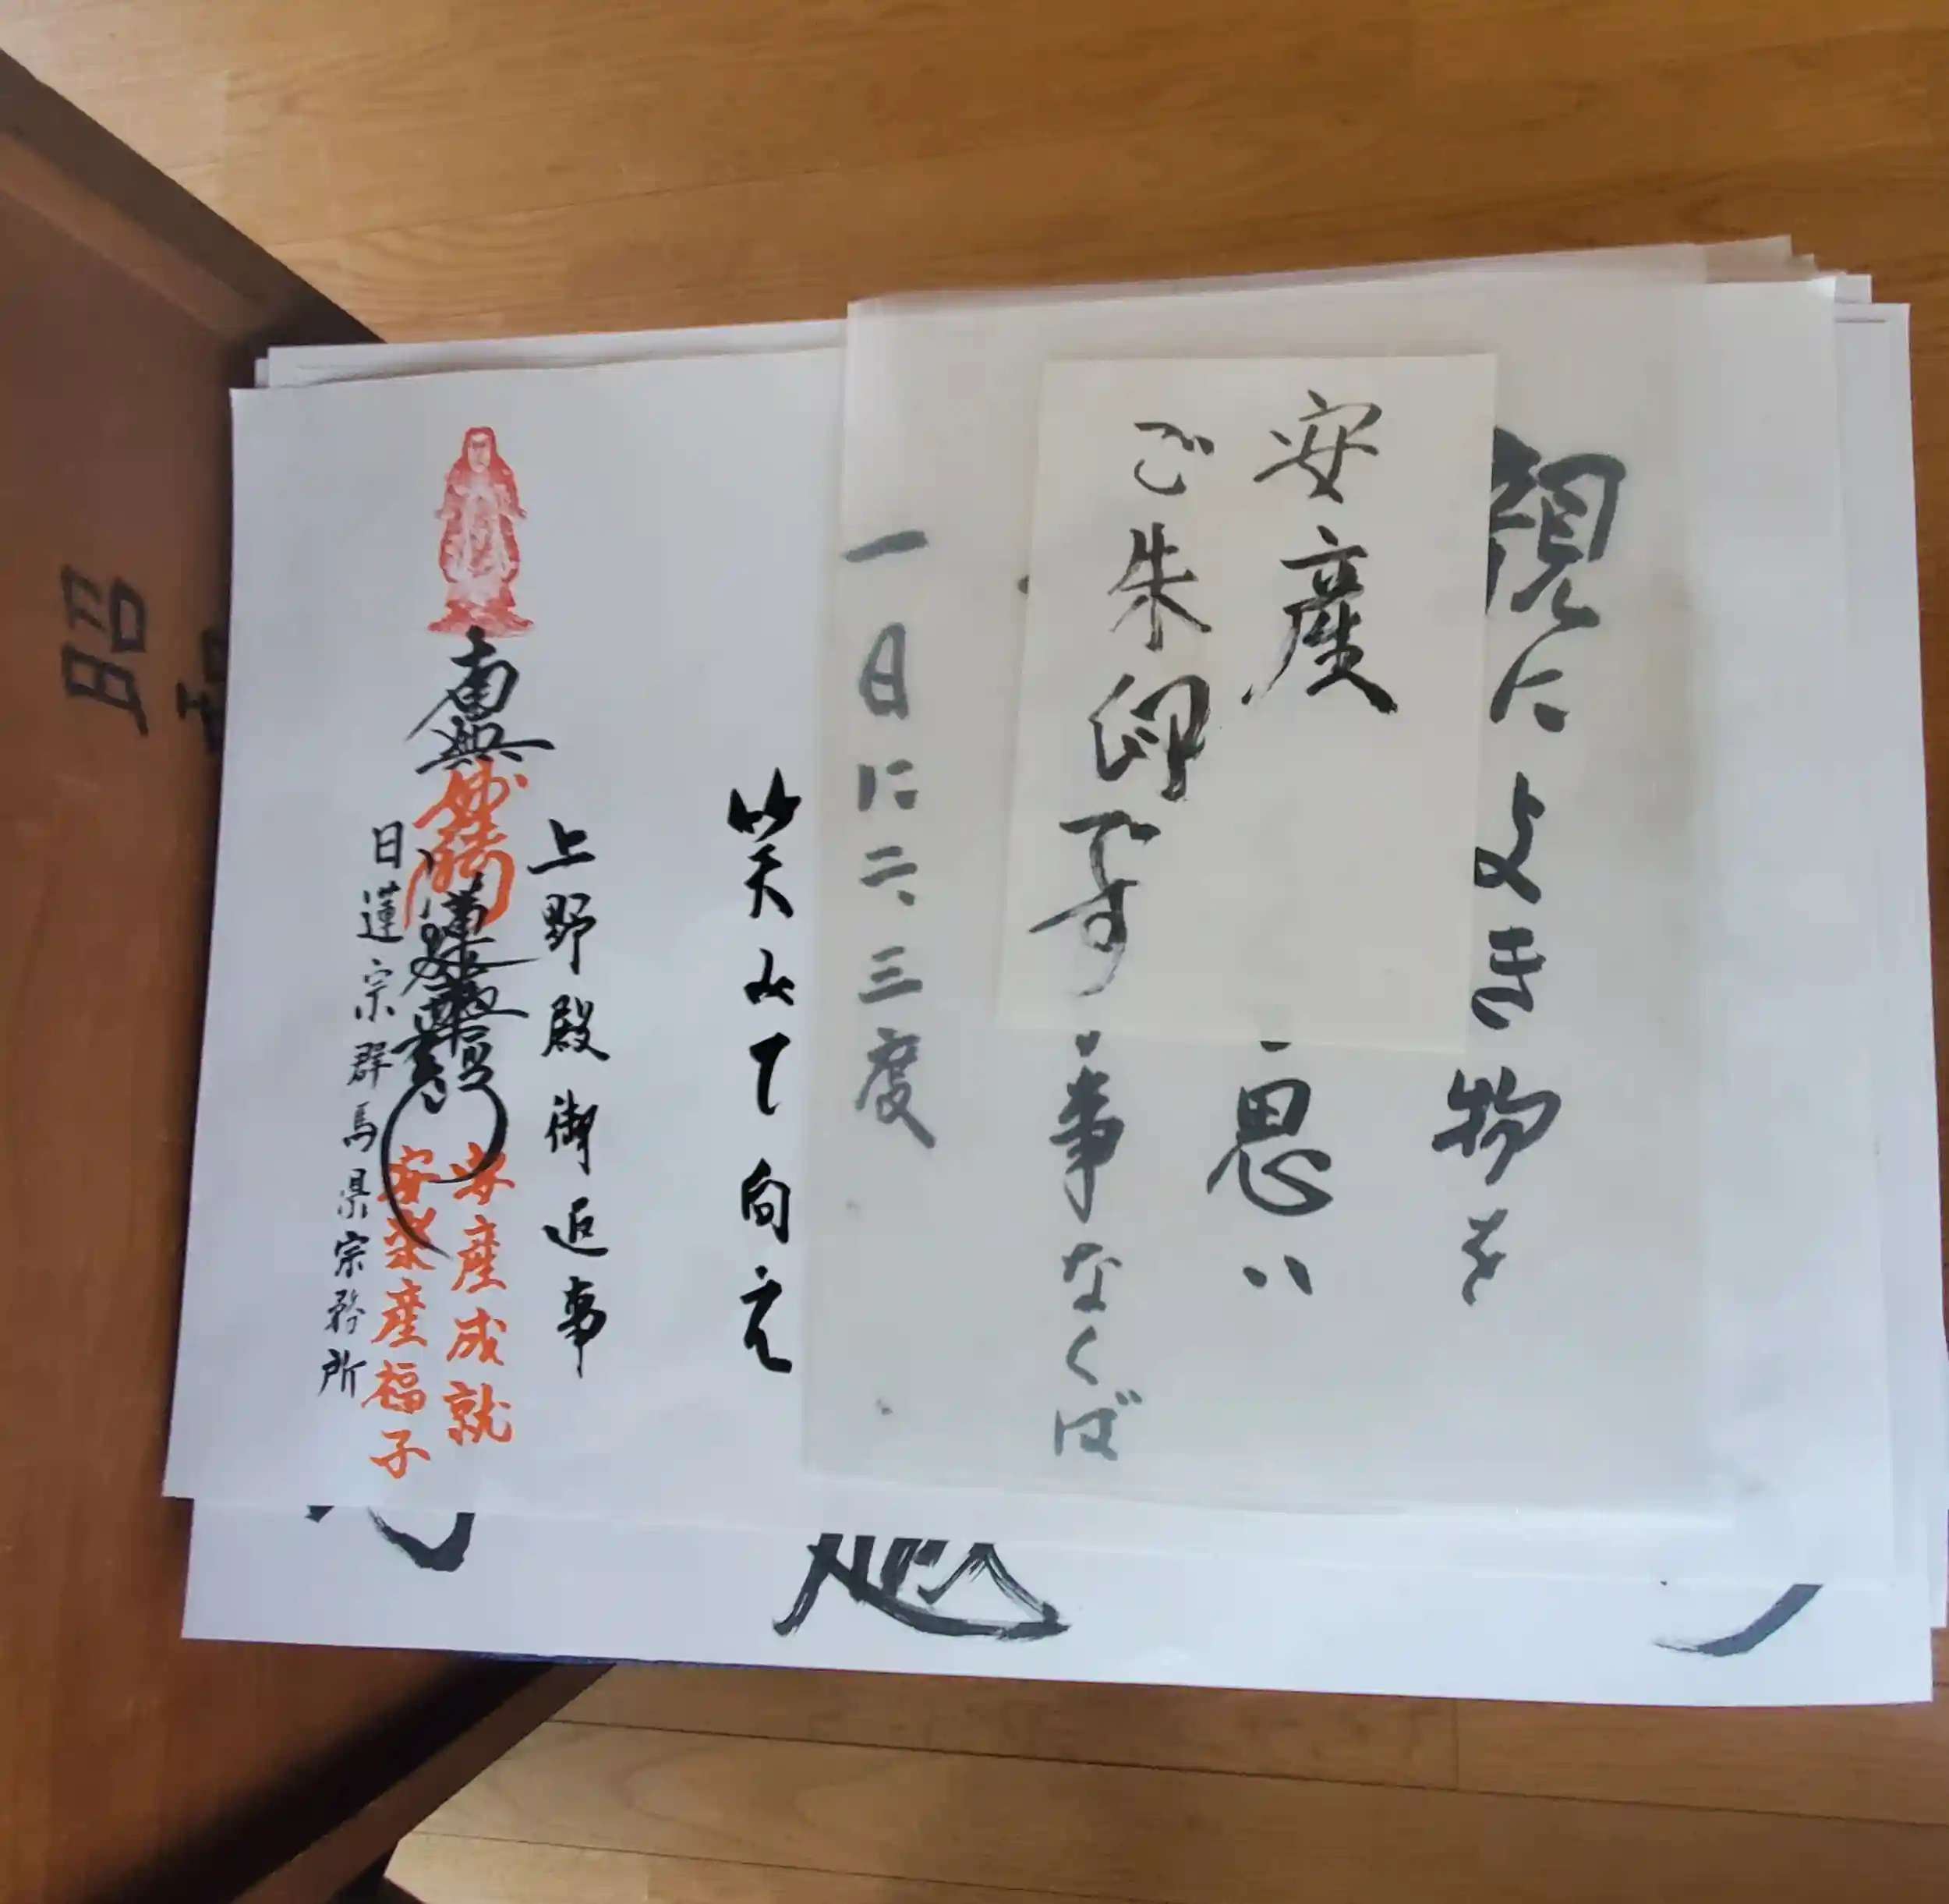 安産
ご朱印
親によき物を
思い
事なくば
一日に二、三度
笑みて向え
上野殿御返事
南無妙法蓮華経
安産成就
安楽産福子
日蓮宗群馬県宗務所
昭